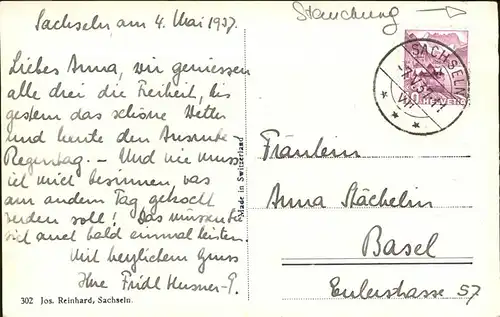 Sachseln, am 4. Mai 1937.
Stauchung
Liebes Anna, wir geniessen
alle drei die Freiheit, bis
gestern das schöne Wetter
und heute den Ausruhe-
Regentag. – Und nie muss
ich mich besinnen was
am andern Tag gekocht
werden soll! Das müssen Sie
sich auch bald einmal leisten.
Mit herzlichem Gruss
Ihre Fridl
302 Jos. Reinhard, Sachseln.
Made in Switzerland
SACHSELN
HELVETIA
Fräulein
Anna Stächelin
Basel
Eulerstrasse 57